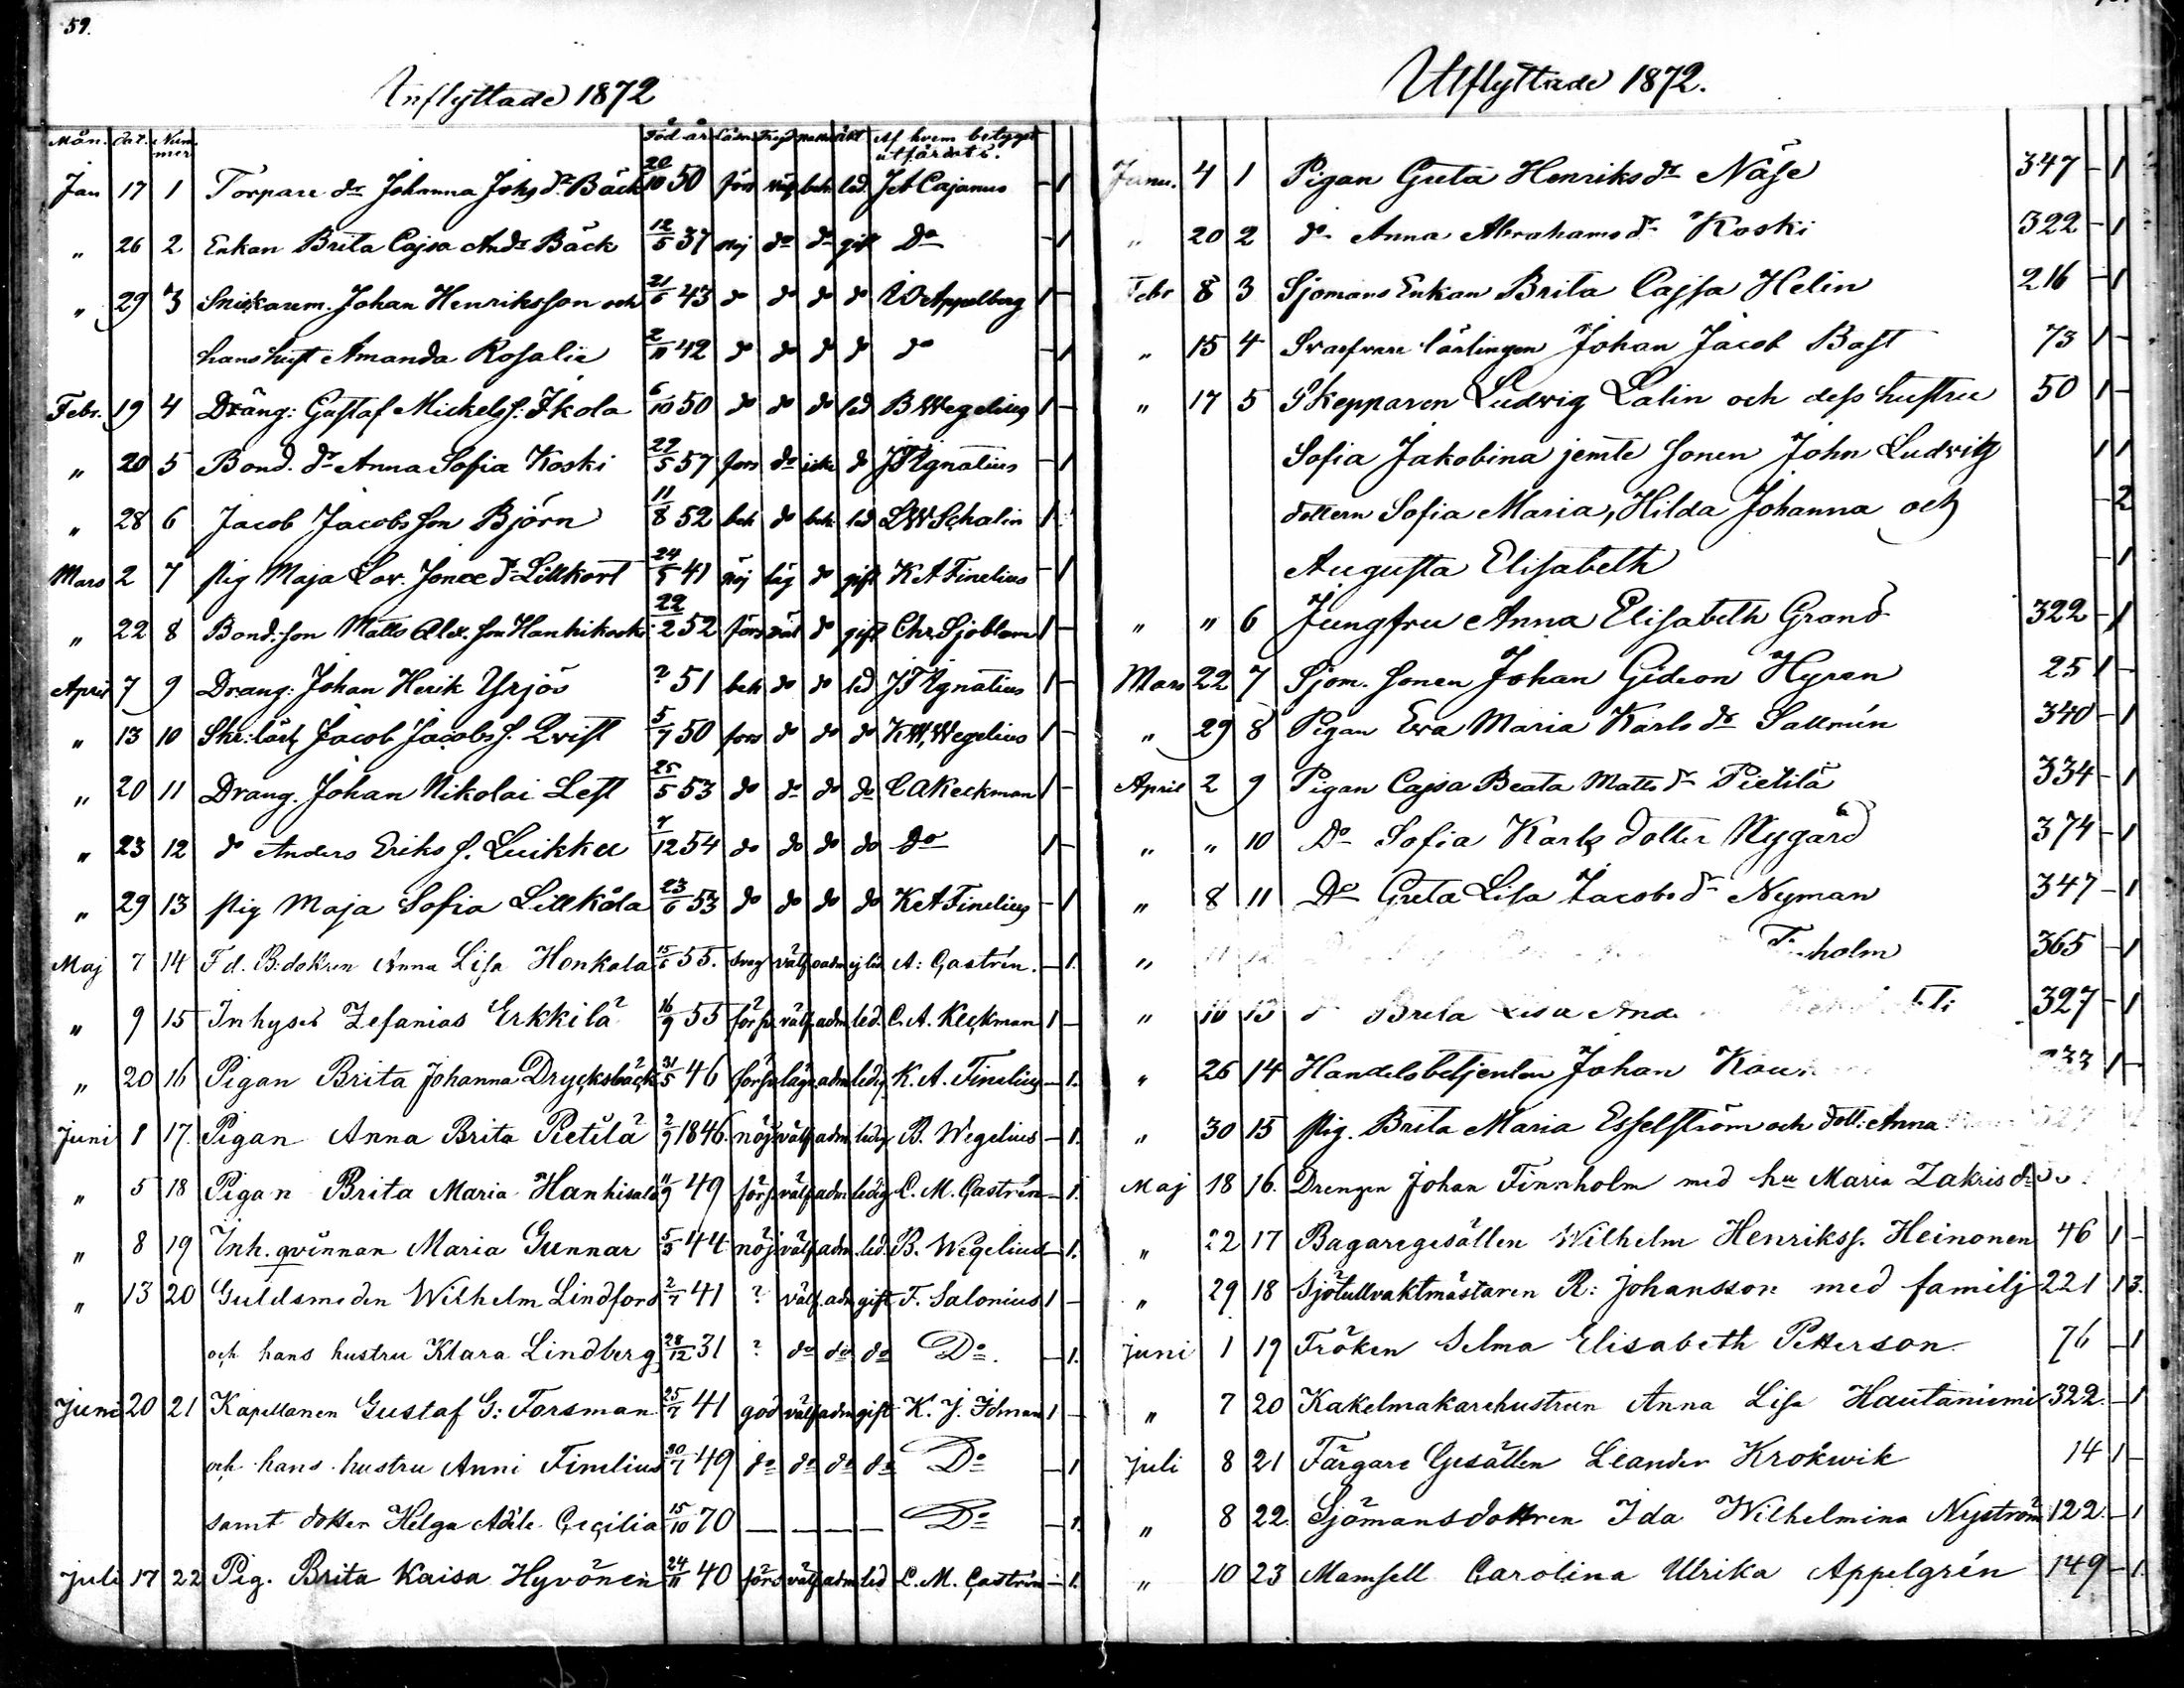 59.
Inflyttade 1872
Mån. Dat. Num Född år Läsn. Frejd natt äkt Af hvem betyget
mer utfärdats.
Jan 17 1 Torpare dr Johanna Johs dr Bäck 20/10 50 förs nöj beh led. Jeb Cajanus - 1
" 26 2 Enkan Brita Cajsa Ands Bäck 12/5 37 nöj do do gift Do - 1
" 29 3 Snickarem. Johan Henriksson och 21/6 43 do do do do W Appelberg 1 -
hans hust Amanda Rosalie 2/11 42 do do do do do - 1
Febr. 19 4 Dräng: Gustaf Mickelss. Ikola 6/10 50 do do do led B Wegelius 1 -
" 20 5 Bond. dr Anna Sofia Koski 22/5 57 fors do icke do JF Ignatius - 1
" 28 6 Jacob Jacobsson Björn 11/8 52 beh do beh led LW Schalin 1
Mars 2 7 pig Maja Lov. Jonæ dr Lillkort 24/5 41 nöj läg do gift K A Finelius - 1
" 22 8 Bond. son Matts Alex. son Hankikoski 22/2 52 förs väl do gift Chr. Sjoblom 1 -
April 7 9 Drang: Johan Herik Yrjös ? 51 beh do do led JF Ignatius 1 -
" 13 10 Skr: lärl Jacob Jacobss. Qvist 5/7 50 fors do do do KW, Wegelius 1 -
" 20 11 Drang. Johan Nikolai Lest 25/5 53 do do do do C A Keckman 1 -
" 23 12 do Anders Eriks s. Luikku 7/12 54 do do do do do 1 -
" 29 13 pig Maja Sofia Lillkåla 23/6 53 do do do do K A Finelius - 1
Maj 7 14 F d. B: dokren Anna Lisa Honkala 15/6 55. svag välf oadm ej led A: Castrén. - 1.
" 9 15 Inhyses Zefanias Erkkilä 16/9 55 försv. välf. adm led. C. A. Keckman 1 -
" 20 16 Pigan Brita Johanna Drycksbäck 31/5 46 försv läg. adm. ledig K. A. Finelius - 1.
Juni 1 17. Pigan Anna Brita Pietilä 2/9 1846. nöj välf adm ledig B. Wegelius - 1.
" 5 18 Pigan Brita Maria Hanhisalo 11/9 49 försv välf adm ledig C. M. Castrén - 1.
" 8 19 Inh. qvinnan Maria Gunnar 5/5 44 nöj välf adm. led. B. Wegelius - 1.
" 13 20 Guldsmeden Wilhelm Lindfors 2/7 41 ? välf. adm gift F. Salonius 1 -
och hans hustru Klara Lindberg 28/12 31 ? do do do Do. - 1.
Juni 20 21 Kapellanen Gustaf G: Forsman 25/7 41 god välf adm gift K. J. Idman 1 -
och hans hustru Anni Finelius 20/7 49 do do do do Do - 1
samt dotter Helga Adèle Cecilia 15/10 70 — — — — Do - 1.
Juli 17 22 Pig. Brita Kaisa Hyvönen 24/11 40 förs välf adm led C. M. Castrén - 1.
Utflyttade 1872.
Janu. 4 1 Pigan Greta Henriks dr Näse 347 - 1
" 20 2 do Anna Abrahams dr Koski 322 - 1
Febr 8 3 Sjomans Enkan Brita Cajsa Helin 216 - 1
" 15 4 Svarfvare lärlingen Johan Jacob Bast 73 1 -
" 17 5 Skepparen Ludvig Lalin och dess hustru 50 1 -
Sofia Jakobina jemte sonen John Ludvig 1 1
dottern Sofia Maria, Hilda Johanna och - 2
Augusta Elisabeth - 1
" " 6 Jungfru Anna Elisabeth Grand 322 - 1
Mars 22 7 Sjom. sonen Johan Gideon Hyren 25 1 -
" 29 8 Pigan Eva Maria Karls dr Sallmén 340 - 1
April 2 9 Pigan Cajsa Beata Matts dr Pietilä 334 - 1
" " 10 Do Sofia Karls dotter Nygård 374 - 1
" 8 11 Do Greta Lisa Jacobs dr Nyman 347 - 1
" 11 12 holm 365 - 1
" 10 13 do Brita Lisa And 327 - 1
" 26 14 Handelsbetjenten Johan 33 1 -
" 30 15 pig. Brita Maria Esselström och dott: Anna
Maj 18 16. Drengen Johan Finnholm med hu Maria Zakris dr
" 22 17 Bagaregesällen Wilhelm Henrikss. Heinonen 46 1 -
" 29 18 Sjötullvaktmästaren R: Johansson med familj 221 1 3.
Juni 1 19 Fröken Selma Elisabeth Petterson 76 - 1
" 7 20 Kakelmakarehustrun Anna Lisa Hautaniemi 322. - 1
Juli 8 21 Färgare Gesällen Leander Krokwik 14 1 -
" 8 22. Sjömansdottren Ida Wilhelmina Nyström 122. - 1
" 10 23 Mamsell Carolina Ulrika Appelgrén 149 - 1.